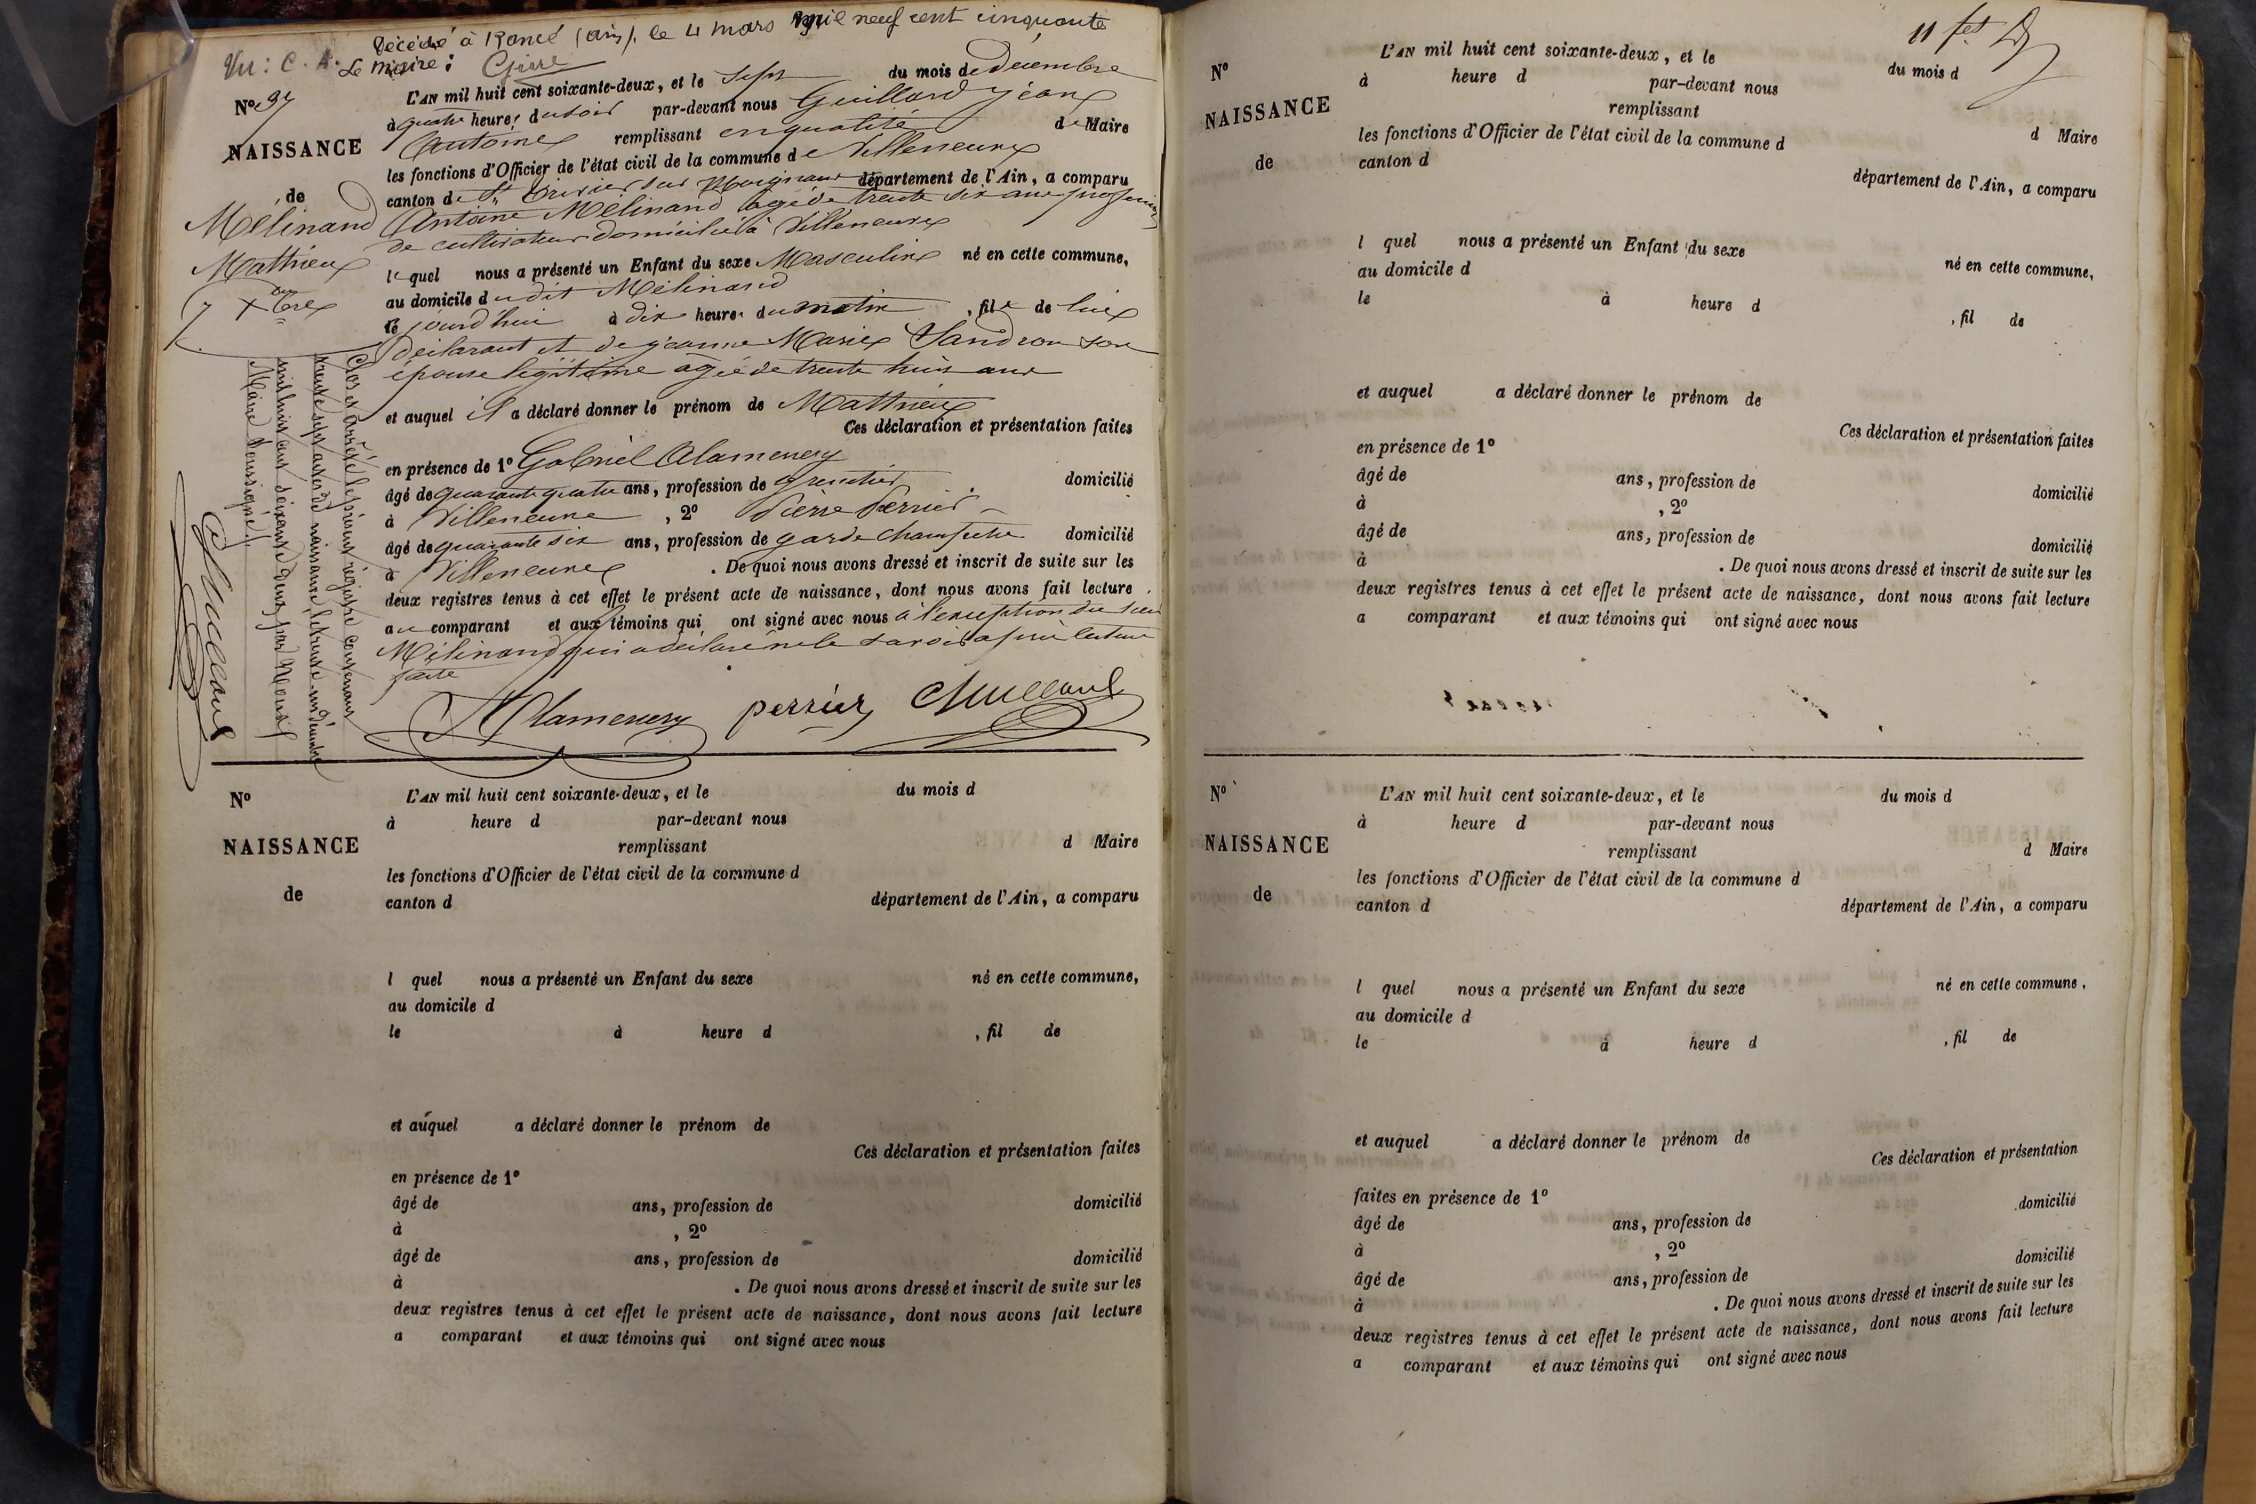 Décédé à Rancé (Ain), le 4 mars mil neuf cent cinquante
Vu : C. A. Le maire :
L'AN mil huit cent soixante-deux, et le sept du mois de Décembre
No 37
à quatre heures du soir par-devant nous Guillard Jean
NAISSANCE
Antoine remplissant en qualité de Maire
les fonctions d'Officier de l'état civil de la commune de Villeneuve
de
canton de St Trivier sur Moignans département de l'Ain, a comparu
Mélinand
Antoine Mélinand âgé de trente six ans profession
de cultivateur domicilié à Villeneuve
Mathieu
lequel nous a présenté un Enfant du sexe Masculin né en cette commune,
7 Xbre
au domicile du dit Mélinand
le jourd'hui à dix heures du matin, fils de lui
déclarant et de jeanne Marie Sandron son
épouse légitime âgée de trente huit ans
et auquel il a déclaré donner le prénom de Mathieu
Ces déclaration et présentation faites
en présence de 1o Gabriel Alamercery
âgé de quarante quatre ans, profession de domicilié
à Villeneuve, 2o Pierre Perrier
âgé de quarante six ans, profession de garde champêtre domicilié
à Villeneuve. De quoi nous avons dressé et inscrit de suite sur les
deux registres tenus à cet effet le présent acte de naissance, dont nous avons fait lecture
au comparant et aux témoins qui ont signé avec nous à l'exception du sieur
Mélinand qui a déclaré ne le savoir après lecture
faite
Alamercery perrier
Clos et arrêté le présent régistre contenant
trente sept actes de naissance, le trente un décembre
mil huit cent soixante deux par Nous
Maire soussigné
No
L'AN mil huit cent soixante-deux, et le du mois d
à heure d par-devant nous
NAISSANCE
remplissant d Maire
les fonctions d'Officier de l'état civil de la commune d
de
canton d département de l'Ain, a comparu
l quel nous a présenté un Enfant du sexe né en cette commune,
au domicile d
le à heure d , fil de
et auquel a déclaré donner le prénom de
Ces déclaration et présentation faites
en présence de 1o
âgé de ans, profession de domicilié
à , 2o
âgé de ans, profession de domicilié
à . De quoi nous avons dressé et inscrit de suite sur les
deux registres tenus à cet effet le présent acte de naissance, dont nous avons fait lecture
a comparant et aux témoins qui ont signé avec nous
11 fet
No
L'AN mil huit cent soixante-deux, et le du mois d
à heure d par-devant nous
NAISSANCE
remplissant d Maire
les fonctions d'Officier de l'état civil de la commune d
de
canton d département de l'Ain, a comparu
l quel nous a présenté un Enfant du sexe né en cette commune,
au domicile d
le à heure d , fil de
et auquel a déclaré donner le prénom de
Ces déclaration et présentation faites
en présence de 1o
âgé de ans, profession de domicilié
à , 2o
âgé de ans, profession de domicilié
à . De quoi nous avons dressé et inscrit de suite sur les
deux registres tenus à cet effet le présent acte de naissance, dont nous avons fait lecture
a comparant et aux témoins qui ont signé avec nous
No
L'AN mil huit cent soixante-deux, et le du mois d
à heure d par-devant nous
NAISSANCE
remplissant d Maire
les fonctions d'Officier de l'état civil de la commune d
de
canton d département de l'Ain, a comparu
l quel nous a présenté un Enfant du sexe né en cette commune,
au domicile d
le à heure d , fil de
et auquel a déclaré donner le prénom de
Ces déclaration et présentation
faites en présence de 1o
âgé de ans, profession de domicilié
à , 2o
âgé de ans, profession de domicilié
à . De quoi nous avons dressé et inscrit de suite sur les
deux registres tenus à cet effet le présent acte de naissance, dont nous avons fait lecture
a comparant et aux témoins qui ont signé avec nous